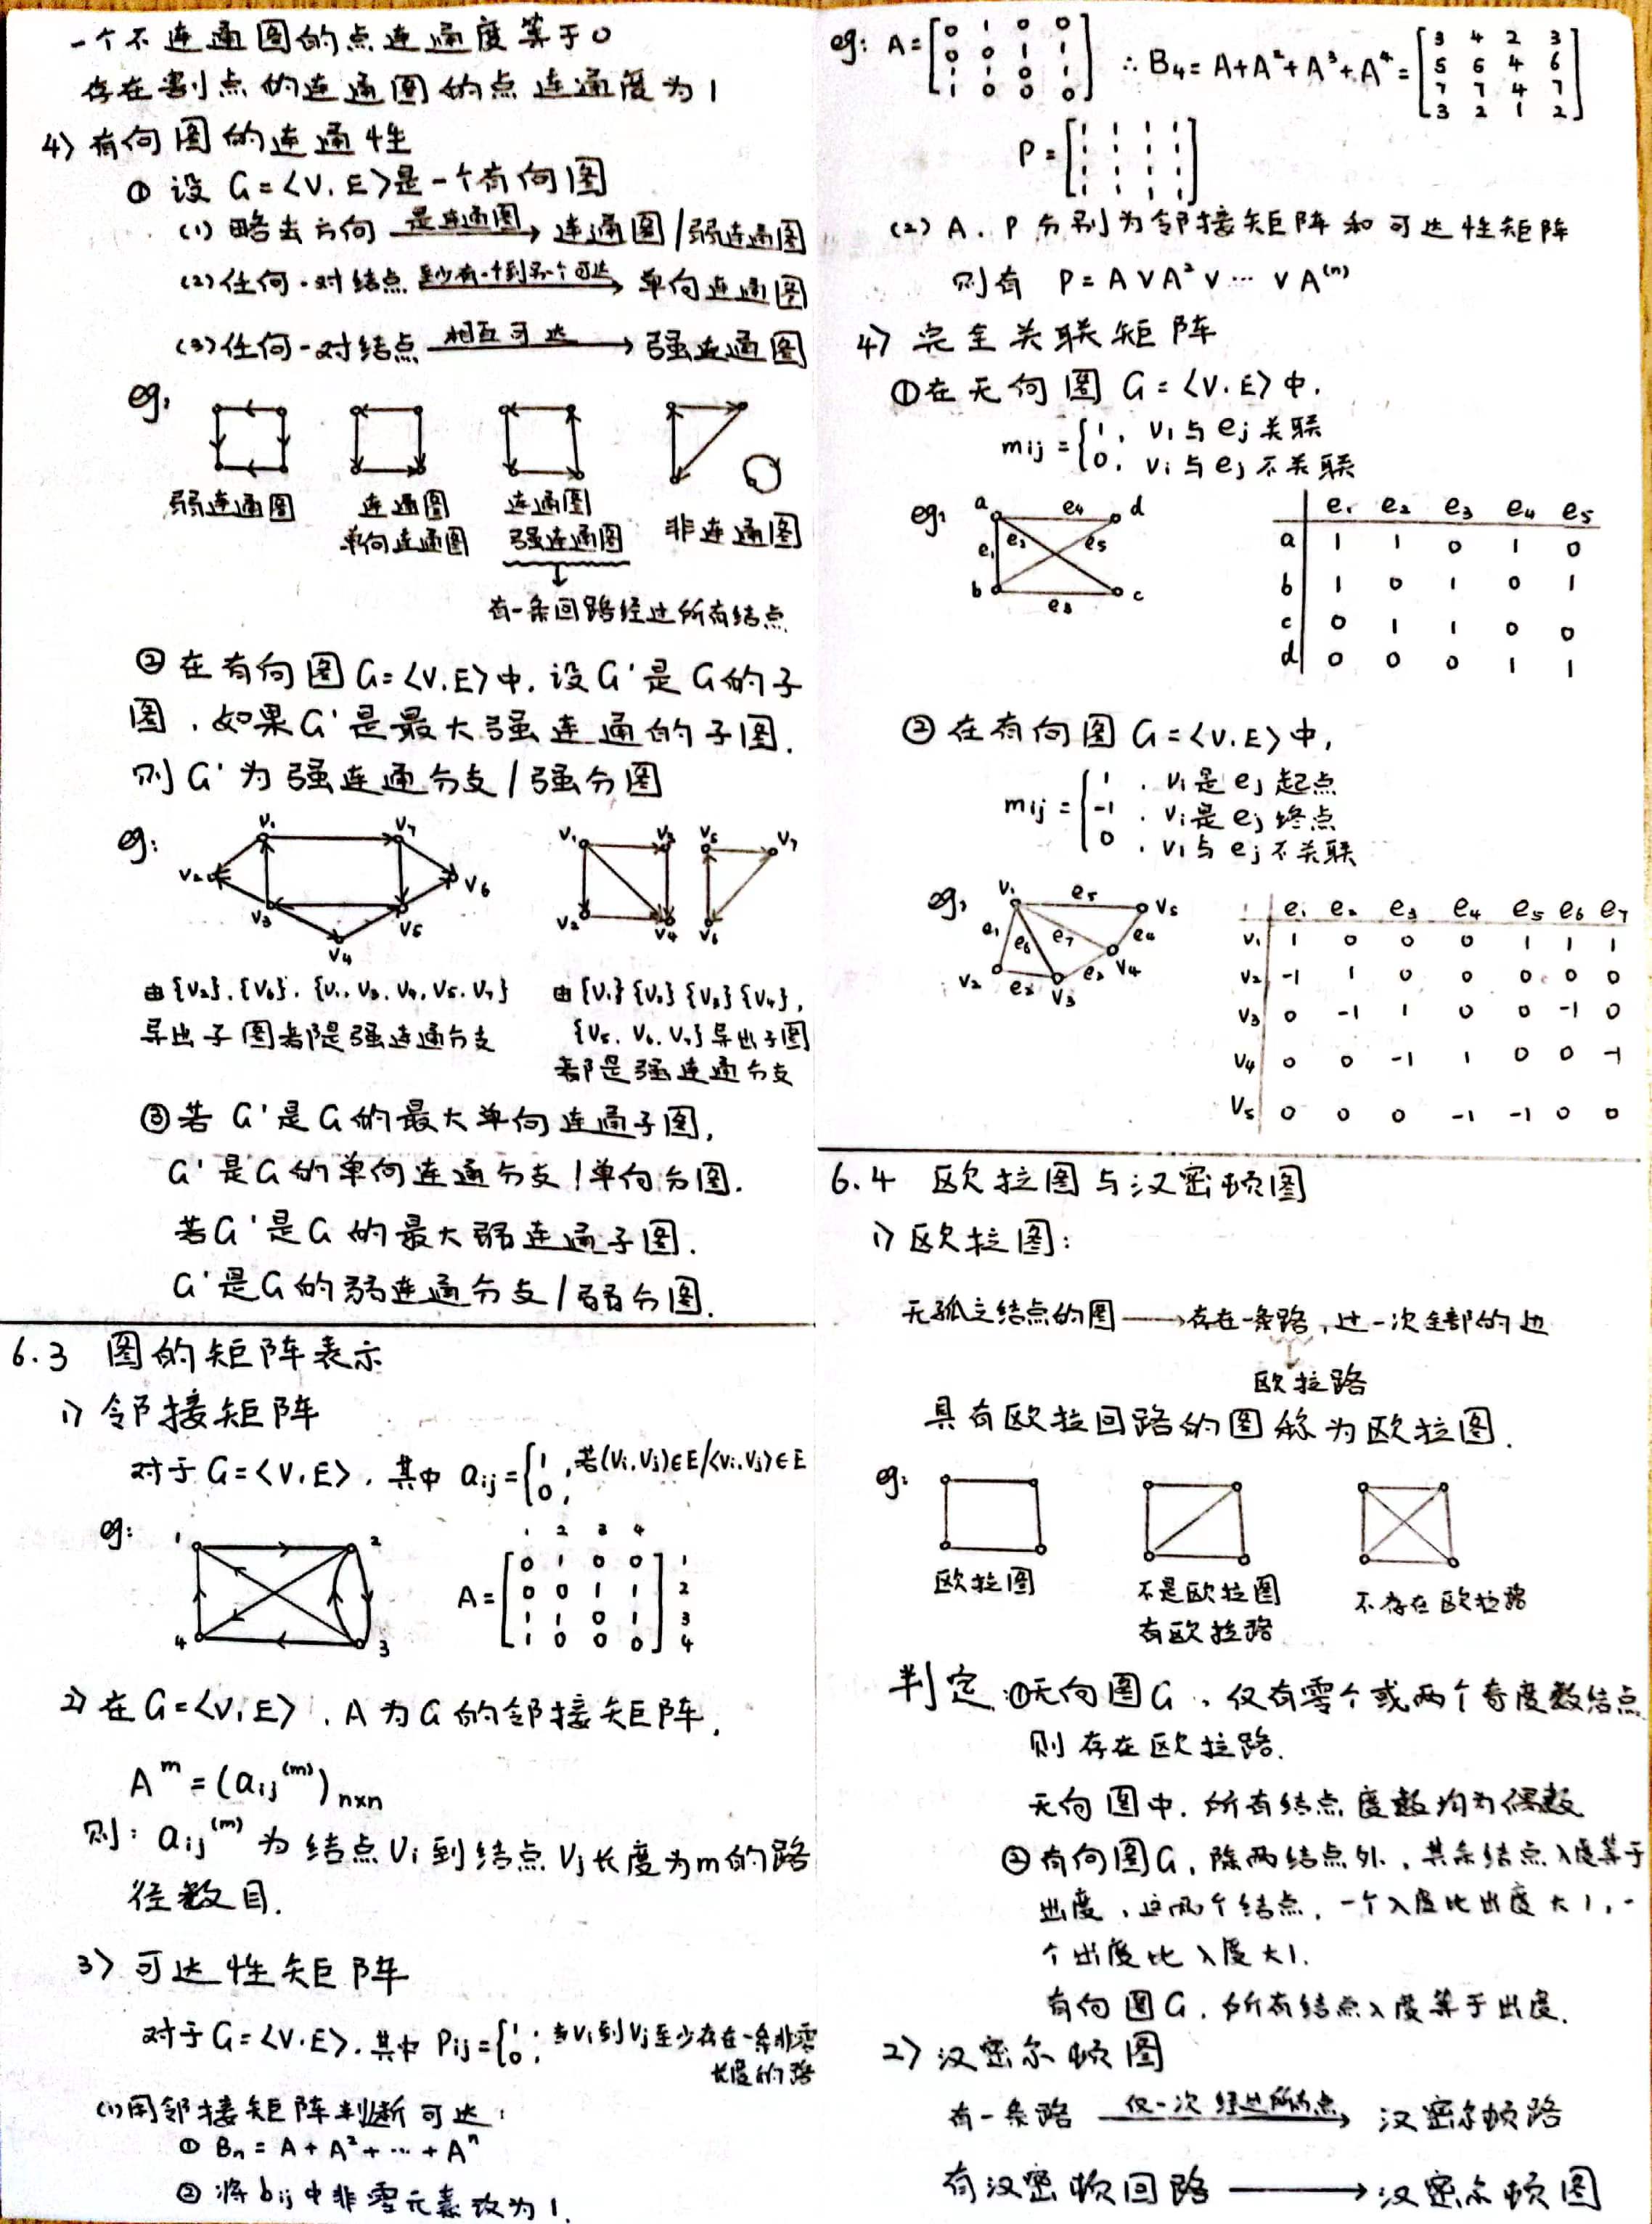 一个不连通图的点连通度等于0
存在割点的连通图的点连通度为1
4) 有向图的连通性
① 设 G=<V.E>是一个有向图
(1) 略去方向 是连通图→ 连通图/弱连通图
(2) 任何一对结点 至少有一个到另一个可达→ 单向连通图
(3) 任何一对结点 相互可达→ 强连通图
eg:
弱连通图 连通图 连通图 非连通图
单向连通图 强连通图
↓
有一条回路经过所有结点
② 在有向图G=<V.E>中.设G'是G的子
图.如果G'是最大强连通的子图.
则G'为强连通分支/强分图
eg:
v1 v7 v2 v6 v3 v5 v4
v1 v3 v5 v7 v2 v4 v6
由{v2}.{v6}.{v1.v3.v4.v5.v7}
导出子图都是强连通分支
由{v1}{v2}{v3}{v4},
{v5.v6.v7}导出子图
都是强连通分支
③若 G'是G的最大单向连通子图,
G'是G的单向连通分支/单向分图.
若G'是G的最大弱连通子图.
G'是G的弱连通分支/弱分图.
6.3 图的矩阵表示
1) 邻接矩阵
对于G=<V.E>.其中 aij={1,若(vi.vj)∈E/<vi.vj>∈E
0,
eg:
1 2 3 4
1 2 3 4
A=[0 1 0 0] 1
0 0 1 1 2
1 1 0 1 3
1 0 0 0 4
2) 在G=<V,E>.A为G的邻接矩阵.
A^m=(aij^(m))n×n
则: aij^(m) 为结点vi到结点vj长度为m的路
径数目.
3) 可达性矩阵
对于G=<V.E>.其中 Pij={1,当vi到vj至少存在一条非零
0, 长度的路
(1)用邻接矩阵判断可达:
① Bn=A+A²+…+A^n
② 将bij中非零元素改为1.
eg: A=[0 1 0 0
0 0 1 1
1 1 0 1
1 0 0 0] ∴B4=A+A²+A³+A⁴=[3 4 2 3
5 5 4 6
7 7 4 7
3 2 1 2]
P=[1 1 1 1
1 1 1 1
1 1 1 1
1 1 1 1]
(2) A.P分别为邻接矩阵和可达性矩阵
则有 P=A∨A²∨…∨A^(n)
4) 完全关联矩阵
①在无向图 G=<V.E>中.
mij={1, vi与ej关联
0, vi与ej不关联
eg:
a d b c e1 e2 e3 e4 e5
e1 e2 e3 e4 e5
a 1 1 0 1 0
b 1 0 1 0 1
c 0 1 1 0 0
d 0 0 0 1 1
② 在有向图G=<V.E>中,
mij={1 .vi是ej起点
-1 .vi是ej终点
0 .vi与ej不关联
eg:
v1 v2 v3 v4 v5 e1 e2 e3 e4 e5 e6 e7
e1 e2 e3 e4 e5 e6 e7
v1 1 0 0 0 1 1 1
v2 -1 1 0 0 0 0 0
v3 0 -1 1 0 0 -1 0
v4 0 0 -1 1 0 0 -1
v5 0 0 0 -1 -1 0 0
6.4 欧拉图与汉密顿图
1) 欧拉图:
无孤立结点的图→存在一条路,过一次全部的边
↓
欧拉路
具有欧拉回路的图称为欧拉图.
eg:
欧拉图 不是欧拉图 不存在欧拉路
有欧拉路
判定:①无向图G,仅有零个或两个奇度数结点.
则存在欧拉路.
无向图中.所有结点度数均为偶数
②有向图G,除两结点外,其余结点入度等于
出度,这两个结点,一个入度比出度大1,一
个出度比入度大1.
有向图G.所有结点入度等于出度.
2) 汉密尔顿图
有一条路 仅一次经过所有点→ 汉密尔顿路
有汉密顿回路→汉密尔顿图